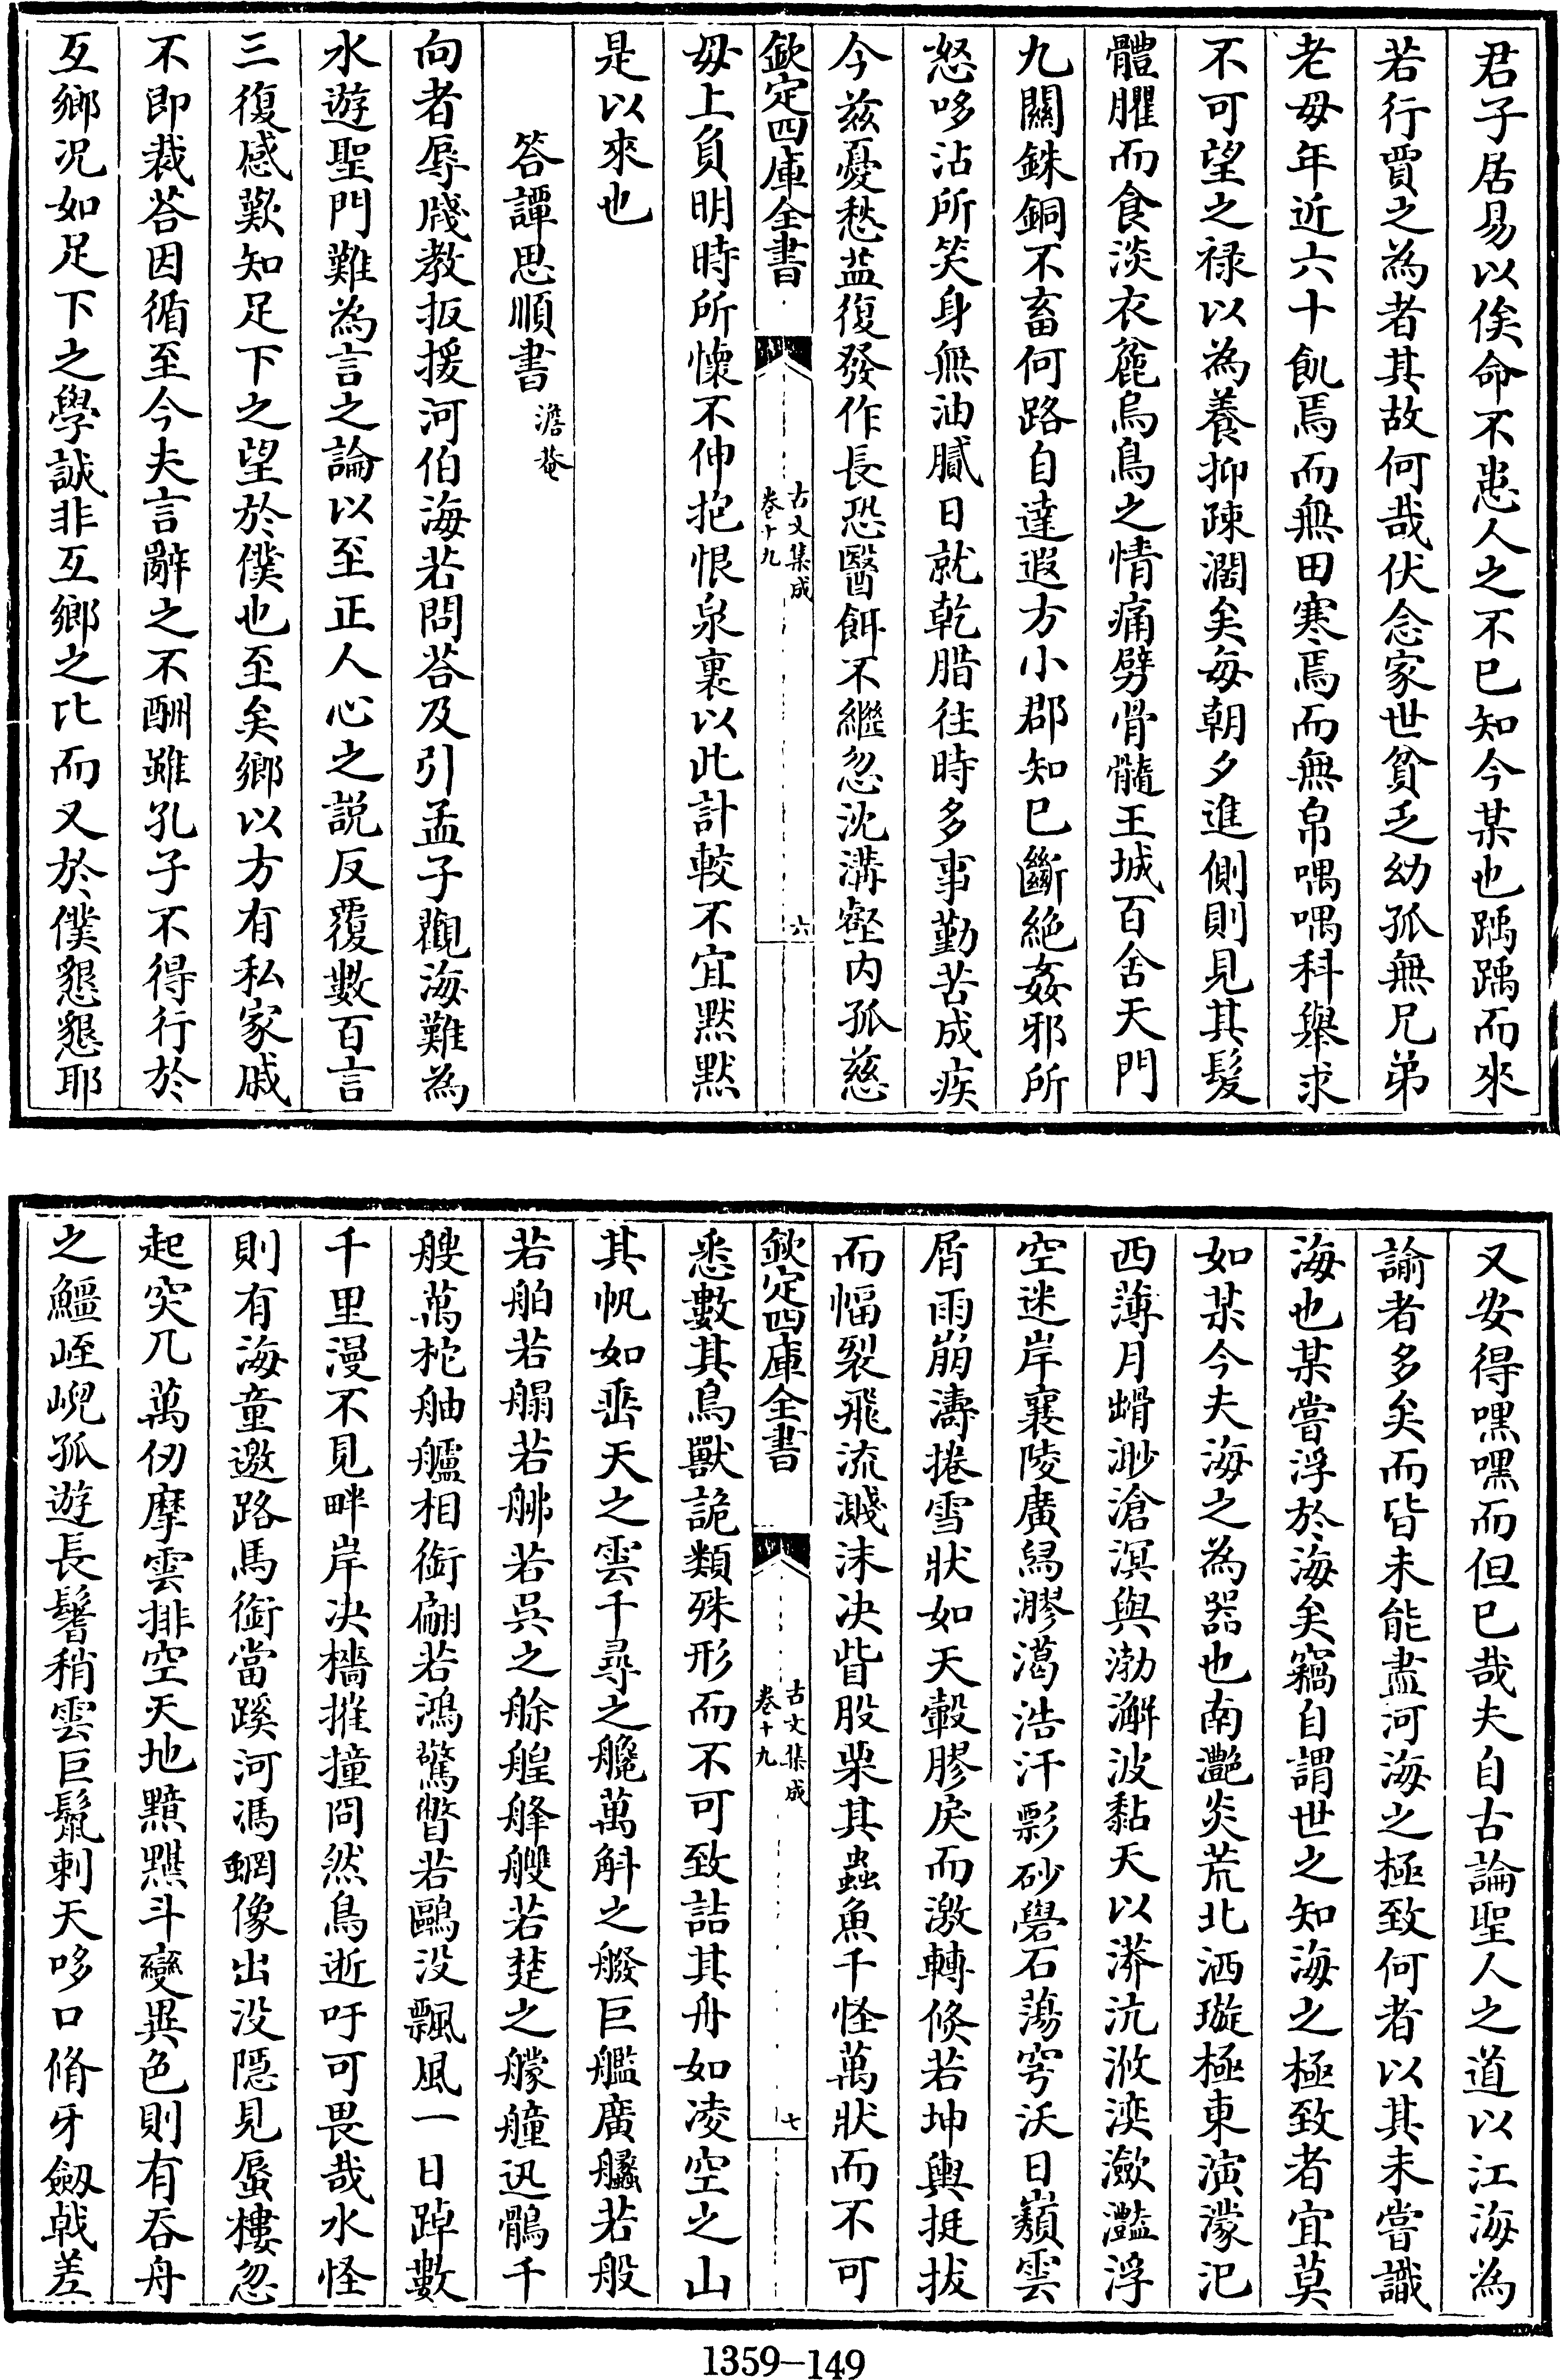 君子居易以俟命不患人之不已知今某也踽踽而來
若行賈之為者其故何哉伏念家世貧乏幼孤無兄弟
老母年近六十飢焉而無田寒焉而無帛喁喁科舉求
不可望之祿以為養抑踈濶矣每朝夕進側則見其髪
體臞而食淡衣麄烏鳥之情痛劈骨髓王城百舍天門
九關銖銅不畜何路自達遐方小郡知已斷絶姦邪所
怒哆沾所笑身無油膩日就乾腊往時多事勤苦成疾
今兹憂愁益復發作長恐醫餌不繼忽沈溝壑内孤慈
欽定四庫全書
古文集成
卷十九
六
毋上負明時所懷不伸抱恨泉裏以此計較不宜黙黙
是以來也
答譚思順書 澹菴
向者辱牋教扳援河伯海若問荅及引孟子觀海難為
水遊聖門難為言之論以至正人心之説反覆數百言
三復感歎知足下之望於僕也至矣鄉以方有私家戚
不即裁荅因循至今夫言辭之不酬雖孔子不得行於
互鄉况如足下之學誠非互鄉之比而又於僕懇懇耶
又安得嘿嘿而但已哉夫自古論聖人之道以江海為
諭者多矣而皆未能盡河海之極致何者以其未嘗識
海也某嘗浮於海矣竊自謂世之知海之極致者宜莫
如某今夫海之為器也南灩炎荒北洒璇極東演濛汜
西薄月𧌑渺滄溟與渤澥波黏天以漭沆浟湙瀲灩浮
空迷岸襄陵廣舄漻㵧浩汗影砂礐石蕩穹沃日巔雲
屑雨崩濤捲雪狀如天轂膠戾而激轉倏若坤輿挺拔
而幅裂飛流濺沫决眥股栗其蟲魚千怪萬狀而不可
欽定四庫全書
古文集成
卷十九
七
悉數其鳥獸詭類殊形而不可致詰其舟如凌空之山
其帆如垂天之雲千尋之䑎萬斛之艬巨艦廣𦪑若般
若舶若艒若艀若吳之艅艎舽艭若楚之艨艟迅鶻千
艘萬柁舳艫相銜翩若鴻驚瞥若鷗没飄風一日踔數
千里漫不見畔岸决檣摧撞冏然鳥逝吁可畏哉水怪
則有海童邀路馬銜當蹊河馮蝄像出没隠見蜃樓忽
起突兀萬仞摩雲排空天地黯黮斗變異色則有吞舟
之鱷峌崼孤遊長鬐稍雲巨鬛刺天哆口脩牙劔戟差
1359-149